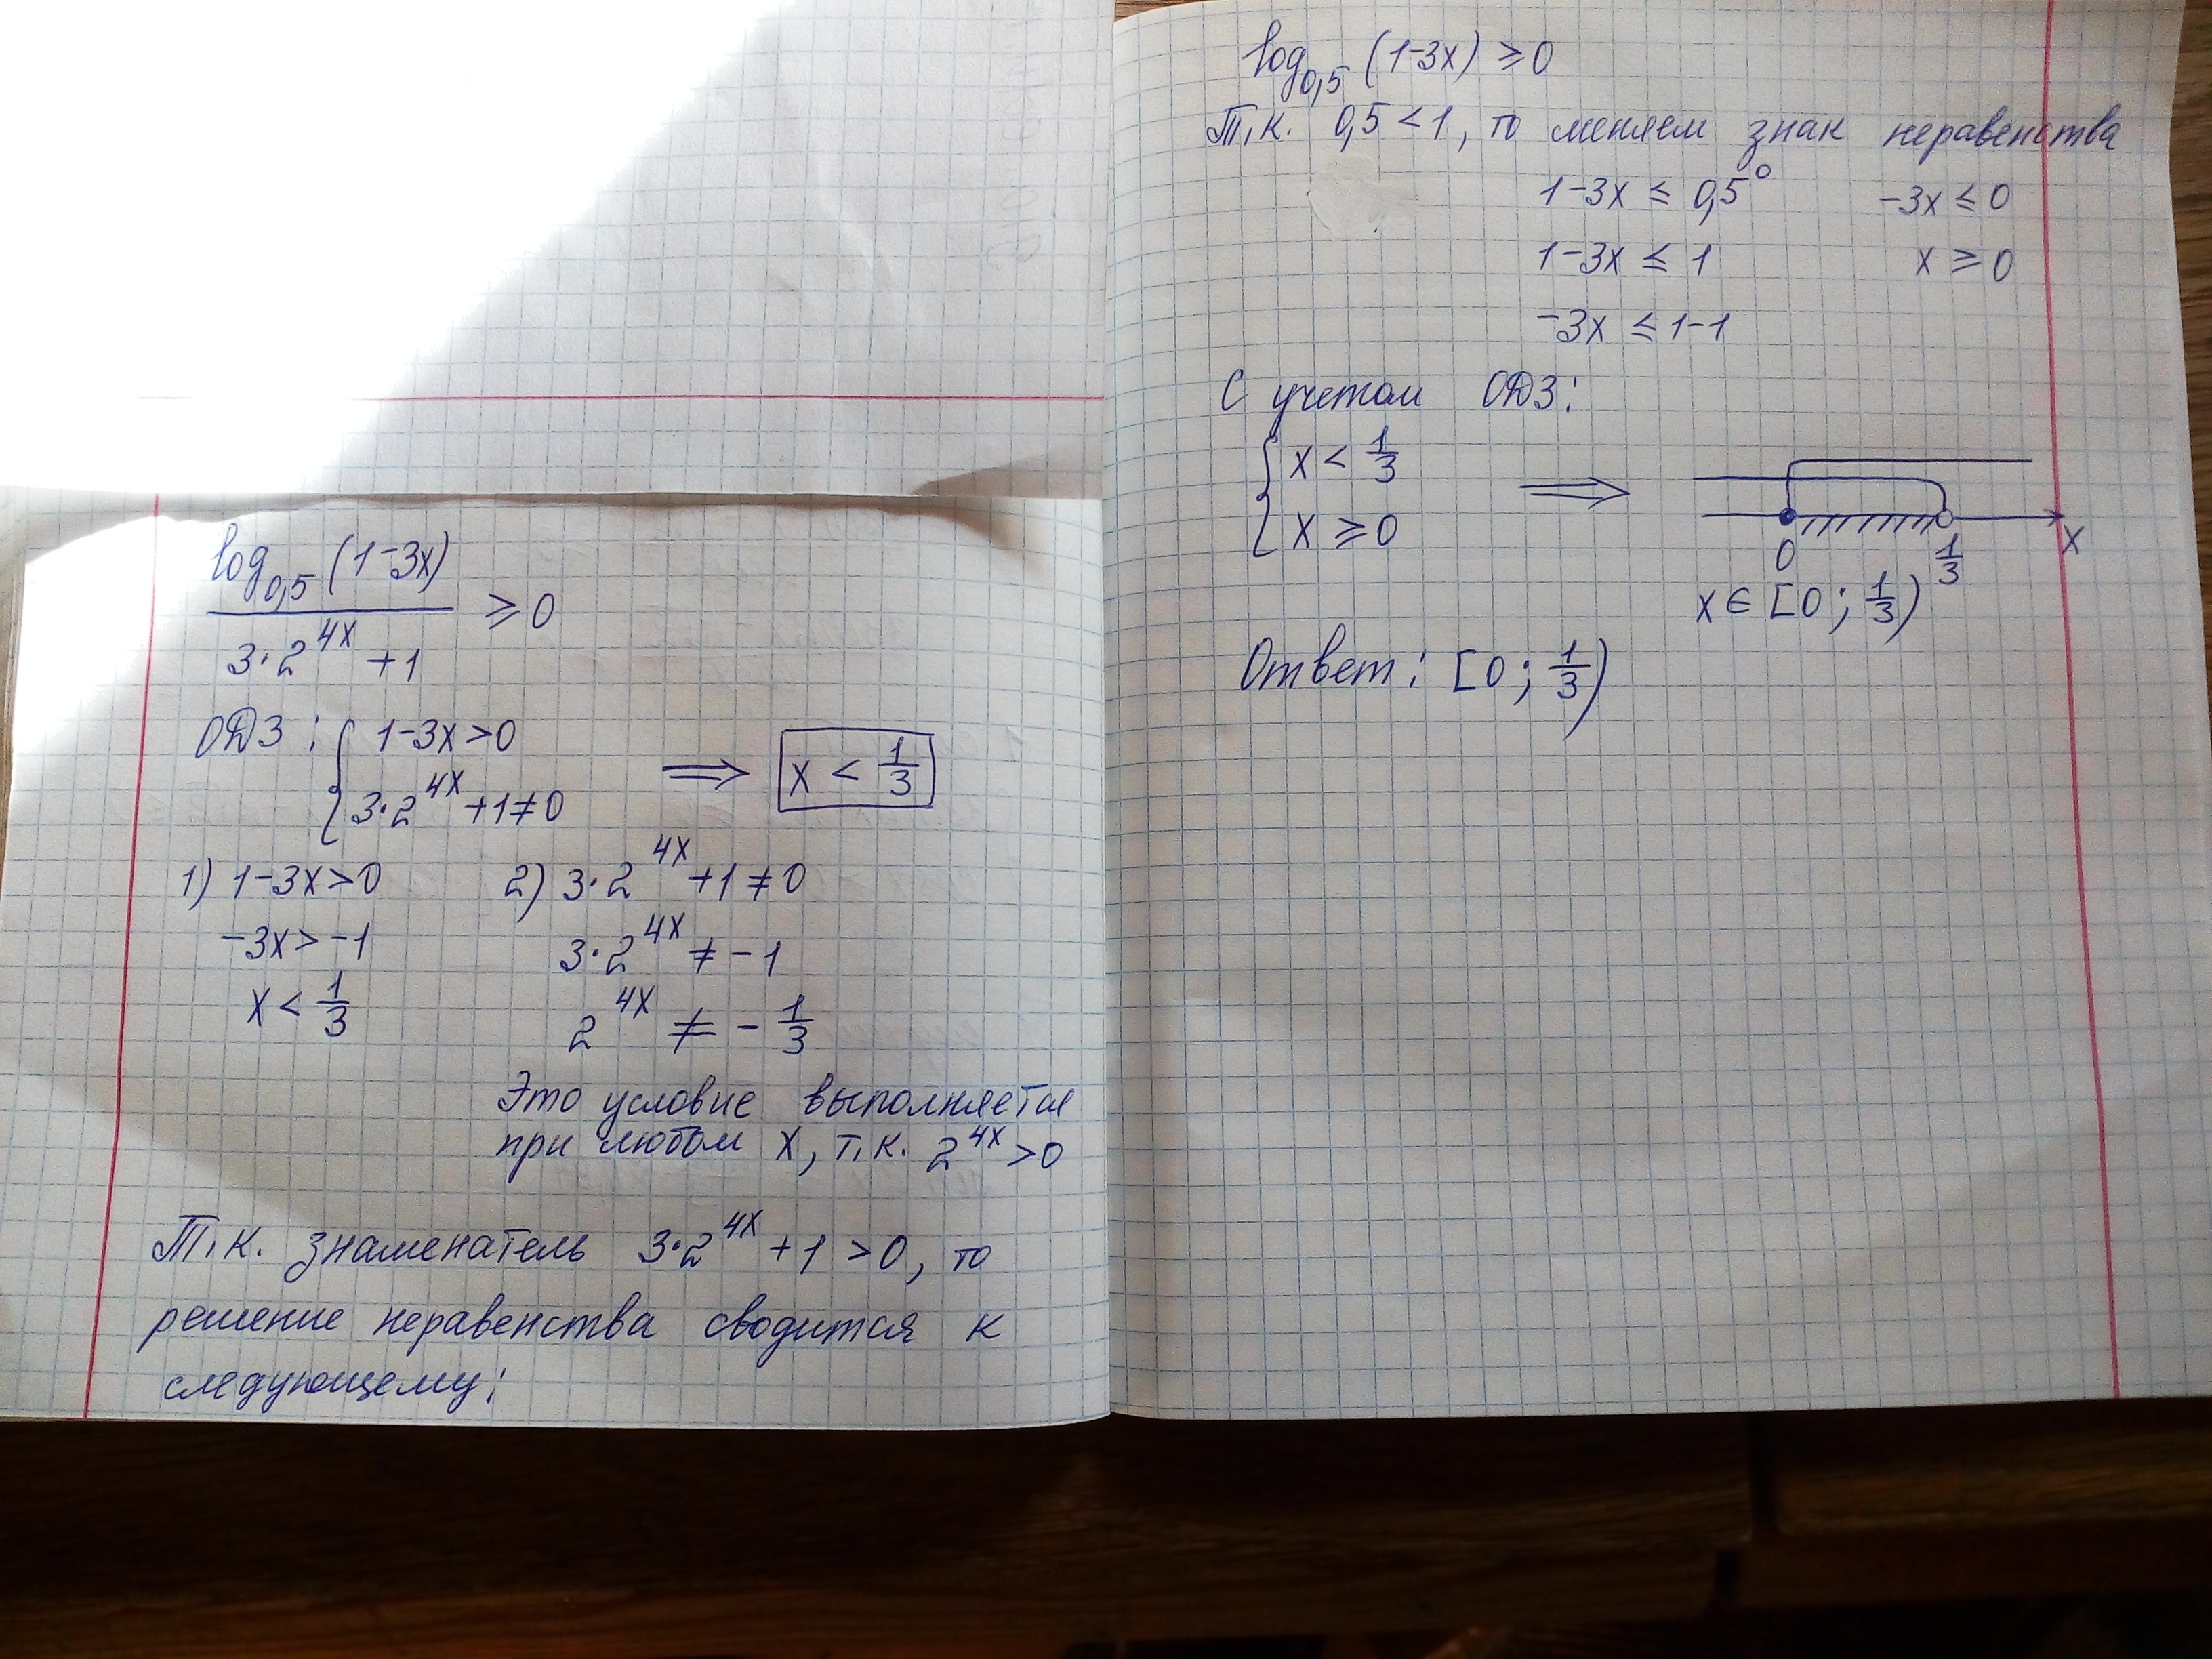 log₀,₅(1-3x)
3·2⁴ˣ+1
≥0
ОДЗ: { 1-3x>0
3·2⁴ˣ+1≠0
⟹ x < 1/3
1) 1-3x>0
-3x>-1
x < 1/3
2) 3·2⁴ˣ+1≠0
3·2⁴ˣ≠-1
2⁴ˣ ≠ -1/3
Это условие выполняется
при любом x, т.к. 2⁴ˣ>0
Т.к. знаменатель 3·2⁴ˣ+1>0, то
решение неравенства сводится к
следующему:
log₀,₅(1-3x)≥0
Т.к. 0,5<1, то меняем знак неравенства
1-3x ≤ 0,5⁰
1-3x ≤ 1
-3x ≤ 1-1
-3x ≤ 0
x ≥ 0
С учетом ОДЗ:
{ x < 1/3
x ≥ 0
⟹
0 1/3 x
x ∈ [0; 1/3)
Ответ: [0; 1/3)